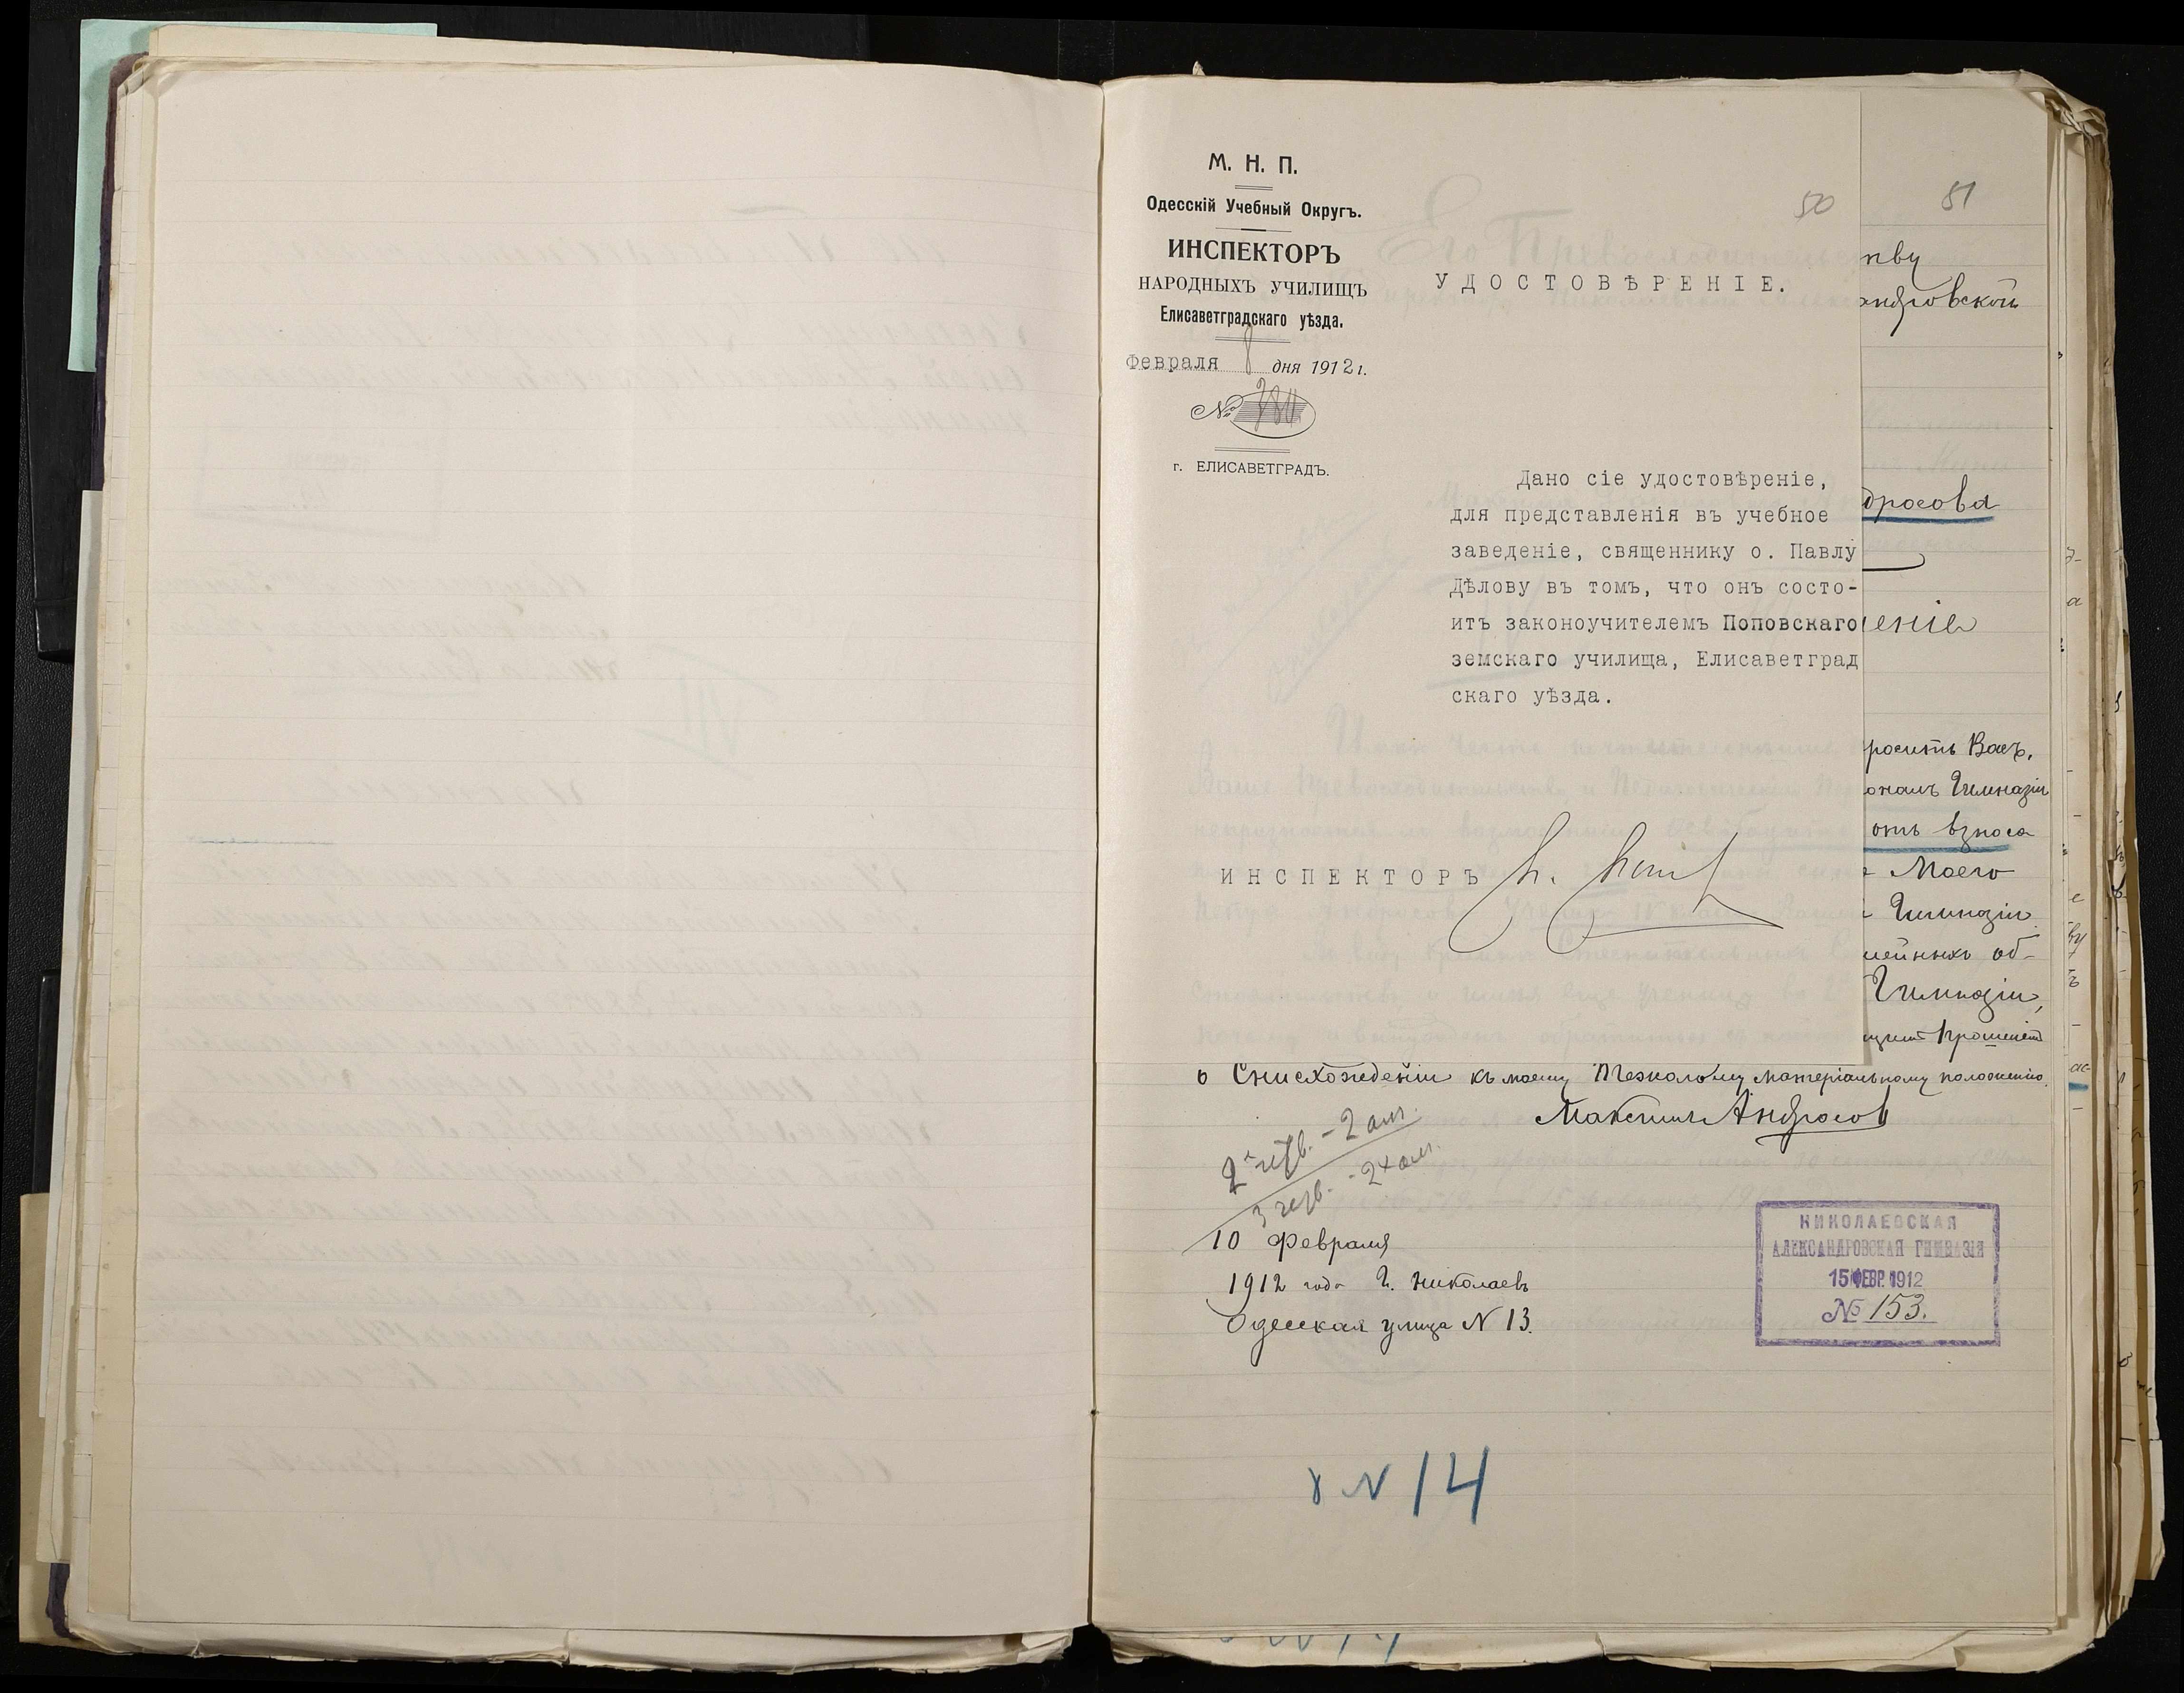 М. Н. П.
Одесскій Учебный Округъ.
ИНСПЕКТОРЪ
НАРОДНЫХЪ УЧИЛИЩЪ
Елисаветградскаго уѣзда.
Февраля 8 дня 1912 г.
№
г. ЕЛИСАВЕТГРАДЪ.
50
УДОСТОВѢРЕНІЕ.
Дано сіе удостовѣреніе,
для представленія въ учебное
заведеніе, священнику о. Павлу
Дѣлову въ томъ, что онъ состо-
итъ законоучителемъ Поповскаго
земскаго училища, Елисаветград
скаго уѣзда.
ИНСПЕКТОРЪ
51
тву
андровской
дросова
еніе
росить Васъ,
оналъ Гимназіи
отъ взноса
Моего
Гимназіи
мейныхъ об-
Гимназіи,
Прошеніе
о Снисхожденіи къ моему Тяжолому матеріальному положенію.
Максимъ Андросов
2 четв. - 2
3 четв. - 2
10 Февраля
1912 года Г. Николаевъ
Одесская улица N 13.
НИКОЛАЕВСКАЯ
АЛЕКСАНДРОВСКАЯ ГИМНАЗІЯ
15 ФЕВР. 1912
№ 153.
N 14